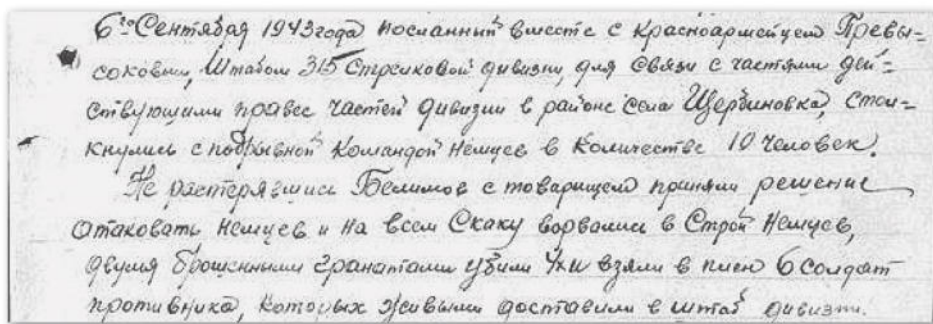 6го Сентября 1943 года посланный вместе с красноармейцем Превы-
соковым, Штабом 315 Стрелковой дивизии, для связи с частями дей-
ствующими правее частей дивизии в районе села Щербиновка, стол-
кнулись с подрывной командой немцев в количестве 10 человек.
Не растерявшись Белимов с товарищем приняли решение
атаковать немцев и на всем скаку ворвались в строй немцев,
двумя брошенными гранатами убили 4х и взяли в плен 6 солдат
противника, которых живыми доставили в штаб дивизии.